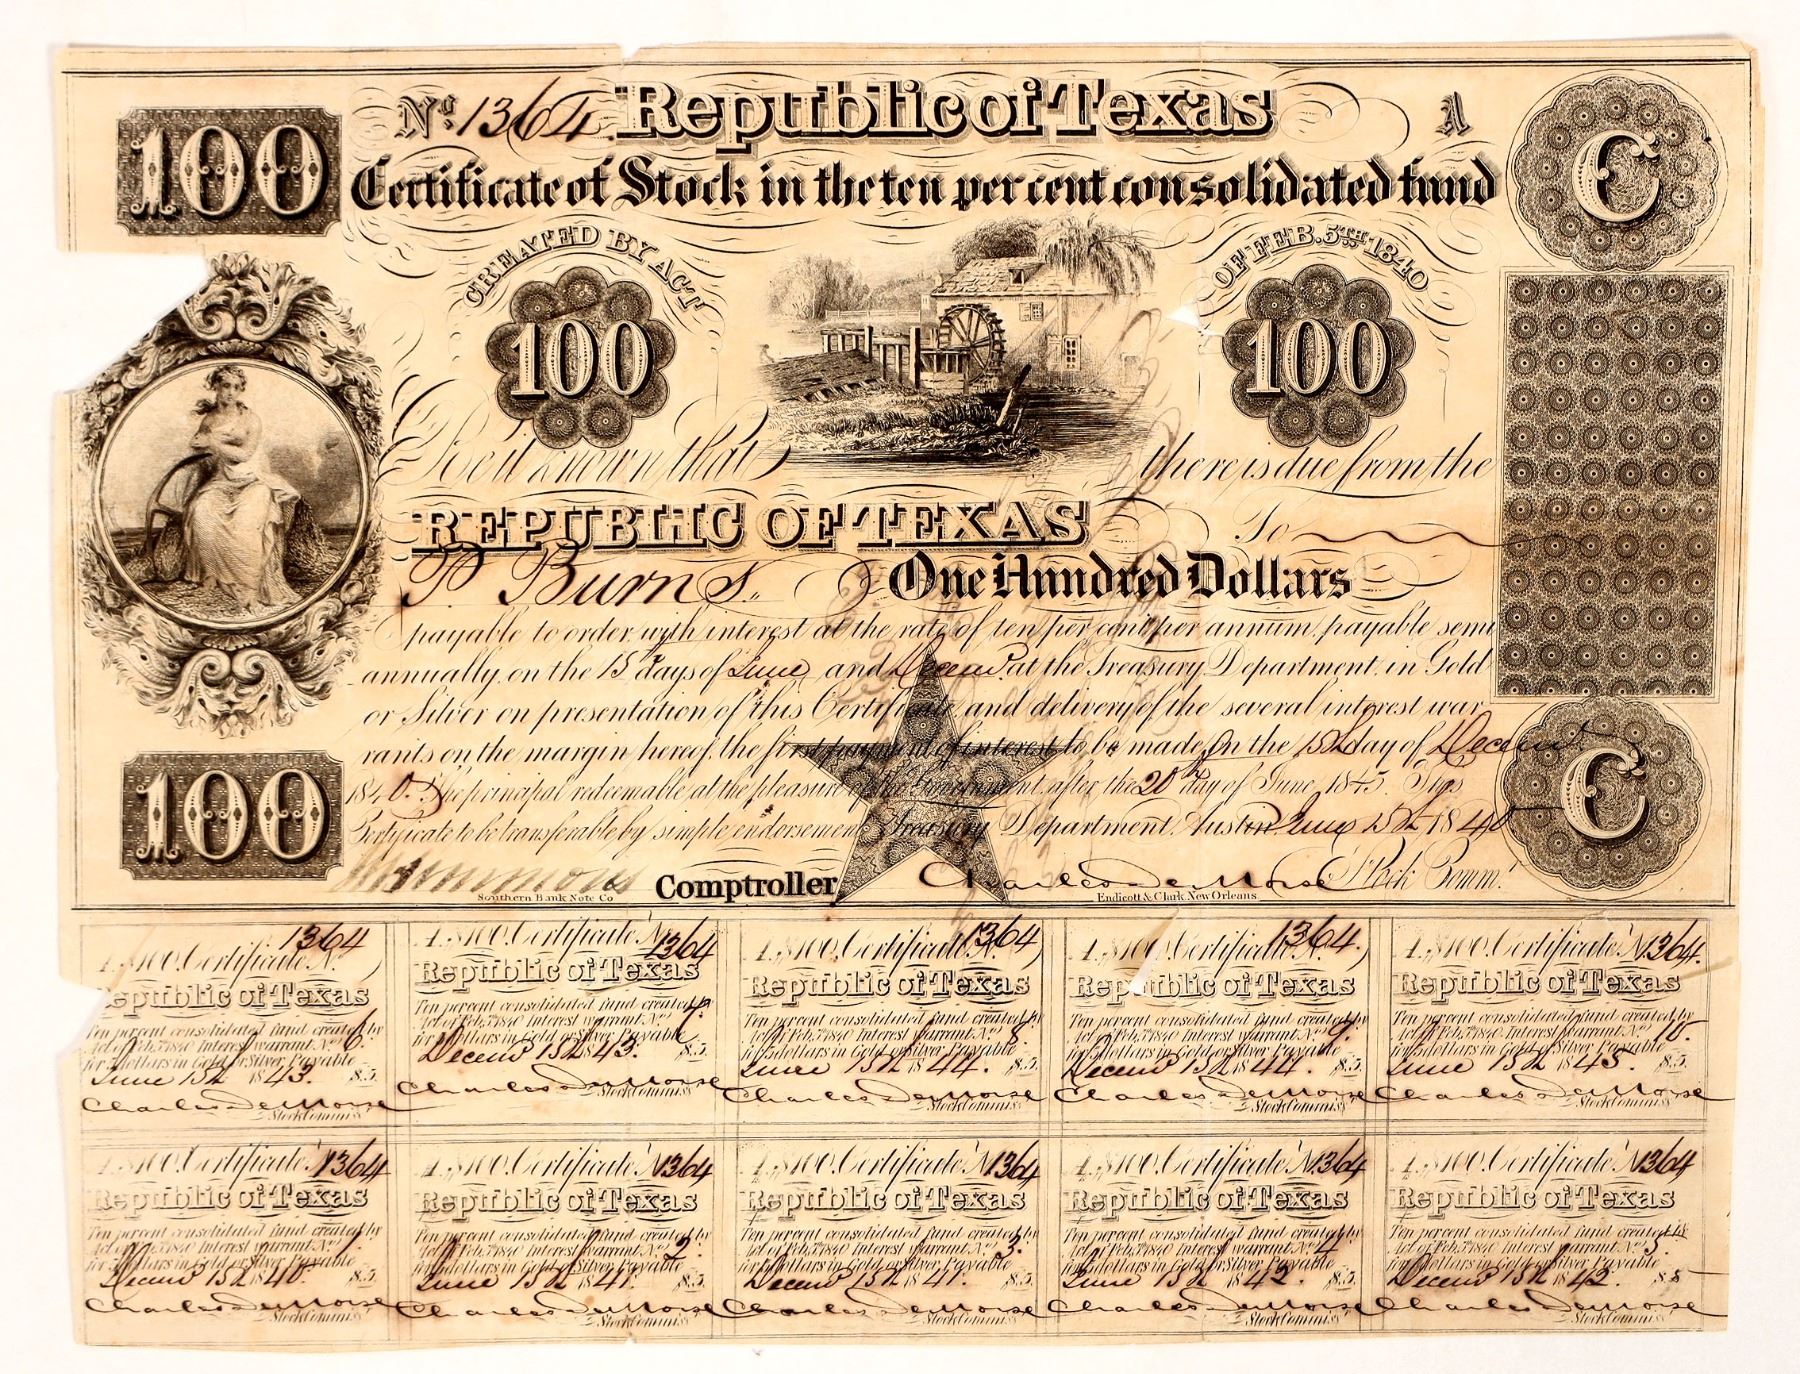 100
No. 1364. Republic of Texas A
C
Certificate of Stock in the ten per cent consolidated fund
CREATED BY ACT
OF FEB. 5TH 1840
100
100
Be it known that there is due from the
REPUBLIC OF TEXAS To
P. Burns. One Hundred Dollars
payable to order, with interest at the rate of ten per cent per annum, payable semi
annually, on the 15 days of June and Decem. at the Treasury Department, in Gold
or Silver on presentation of this Certificate, and delivery of the several interest war
rants on the margin hereof, the first payment of interest to be made, on the 15th day of Decem.
1840. The principal redeemable at the pleasure of the Government, after the 20 day of June, 1845. This
Certificate to be transferable by simple endorsement. Treasury Department, Austin June 15th 1840
100
C
Comptroller Charles DeMorse Stock Comm.r
Southern Bank Note Co Endicott & Clark New Orleans.
1364
A. $100. Certificate N.
epublic of Texas
Ten per cent consolidated fund created by
Act of Feb. 5th 1840 Interest warrant No. 6.
for 5 dollars in Gold or Silver Payable
June 15th 1843. $5.
Charles DeMorse
Stock Commiss
A. $100. Certificate No. 1364
Republic of Texas
Ten per cent consolidated fund created by
Act of Feb. 5th 1840 Interest warrant No. 7.
for 5 dollars in Gold or Silver Payable
Decem 15th 43. $5.
Charles DeMorse
Stock Commiss
A. $100. Certificate N. 1364
Republic of Texas
Ten per cent consolidated fund created by
Act of Feb. 5th 1840 Interest warrant No. 8.
for 5 dollars in Gold or Silver Payable
June 15th 1844. $5.
Charles DeMorse
Stock Commiss
A. $100. Certificate N. 1364.
Republic of Texas
Ten per cent consolidated fund created by
Act of Feb. 5th 1840 Interest warrant No. 9.
for 5 dollars in Gold or Silver Payable
Decem 15th 1844. $5.
Charles DeMorse
Stock Commiss
A. $100. Certificate N. 1364.
Republic of Texas
Ten per cent consolidated fund created by
Act of Feb. 5th 1840 Interest warrant No. 10.
for 5 dollars in Gold or Silver Payable
June 15th 1845. $5.
Charles DeMorse
Stock Commiss
A. $100. Certificate N 1364
Republic of Texas
Ten per cent consolidated fund created by
Act of Feb. 5th 1840 Interest warrant No. 1.
for 5 dollars in Gold or Silver Payable
Decem 15th 1840. $5.
Charles DeMorse
Stock Commiss
A. $100. Certificate N 1364
Republic of Texas
Ten per cent consolidated fund created by
Act of Feb. 5th 1840 Interest warrant No. 2.
for 5 dollars in Gold or Silver Payable
June 15th 1841. $5.
Charles DeMorse
Stock Commiss
A. $100. Certificate N 1364
Republic of Texas
Ten per cent consolidated fund created by
Act of Feb. 5th 1840 Interest warrant No. 3.
for 5 dollars in Gold or Silver Payable
Decem 15th 1841. $5.
Charles DeMorse
Stock Commiss
A. $100. Certificate N 1364
Republic of Texas
Ten per cent consolidated fund created by
Act of Feb. 5th 1840 Interest warrant No. 4
for 5 dollars in Gold or Silver Payable
June 15th 1842. $5.
Charles DeMorse
Stock Commiss
A. $100. Certificate N 1364
Republic of Texas
Ten per cent consolidated fund created by
Act of Feb. 5th 1840 Interest warrant No. 5.
for 5 dollars in Gold or Silver Payable
Decem 15th 1842. $5
Charles DeMorse
Stock Commiss